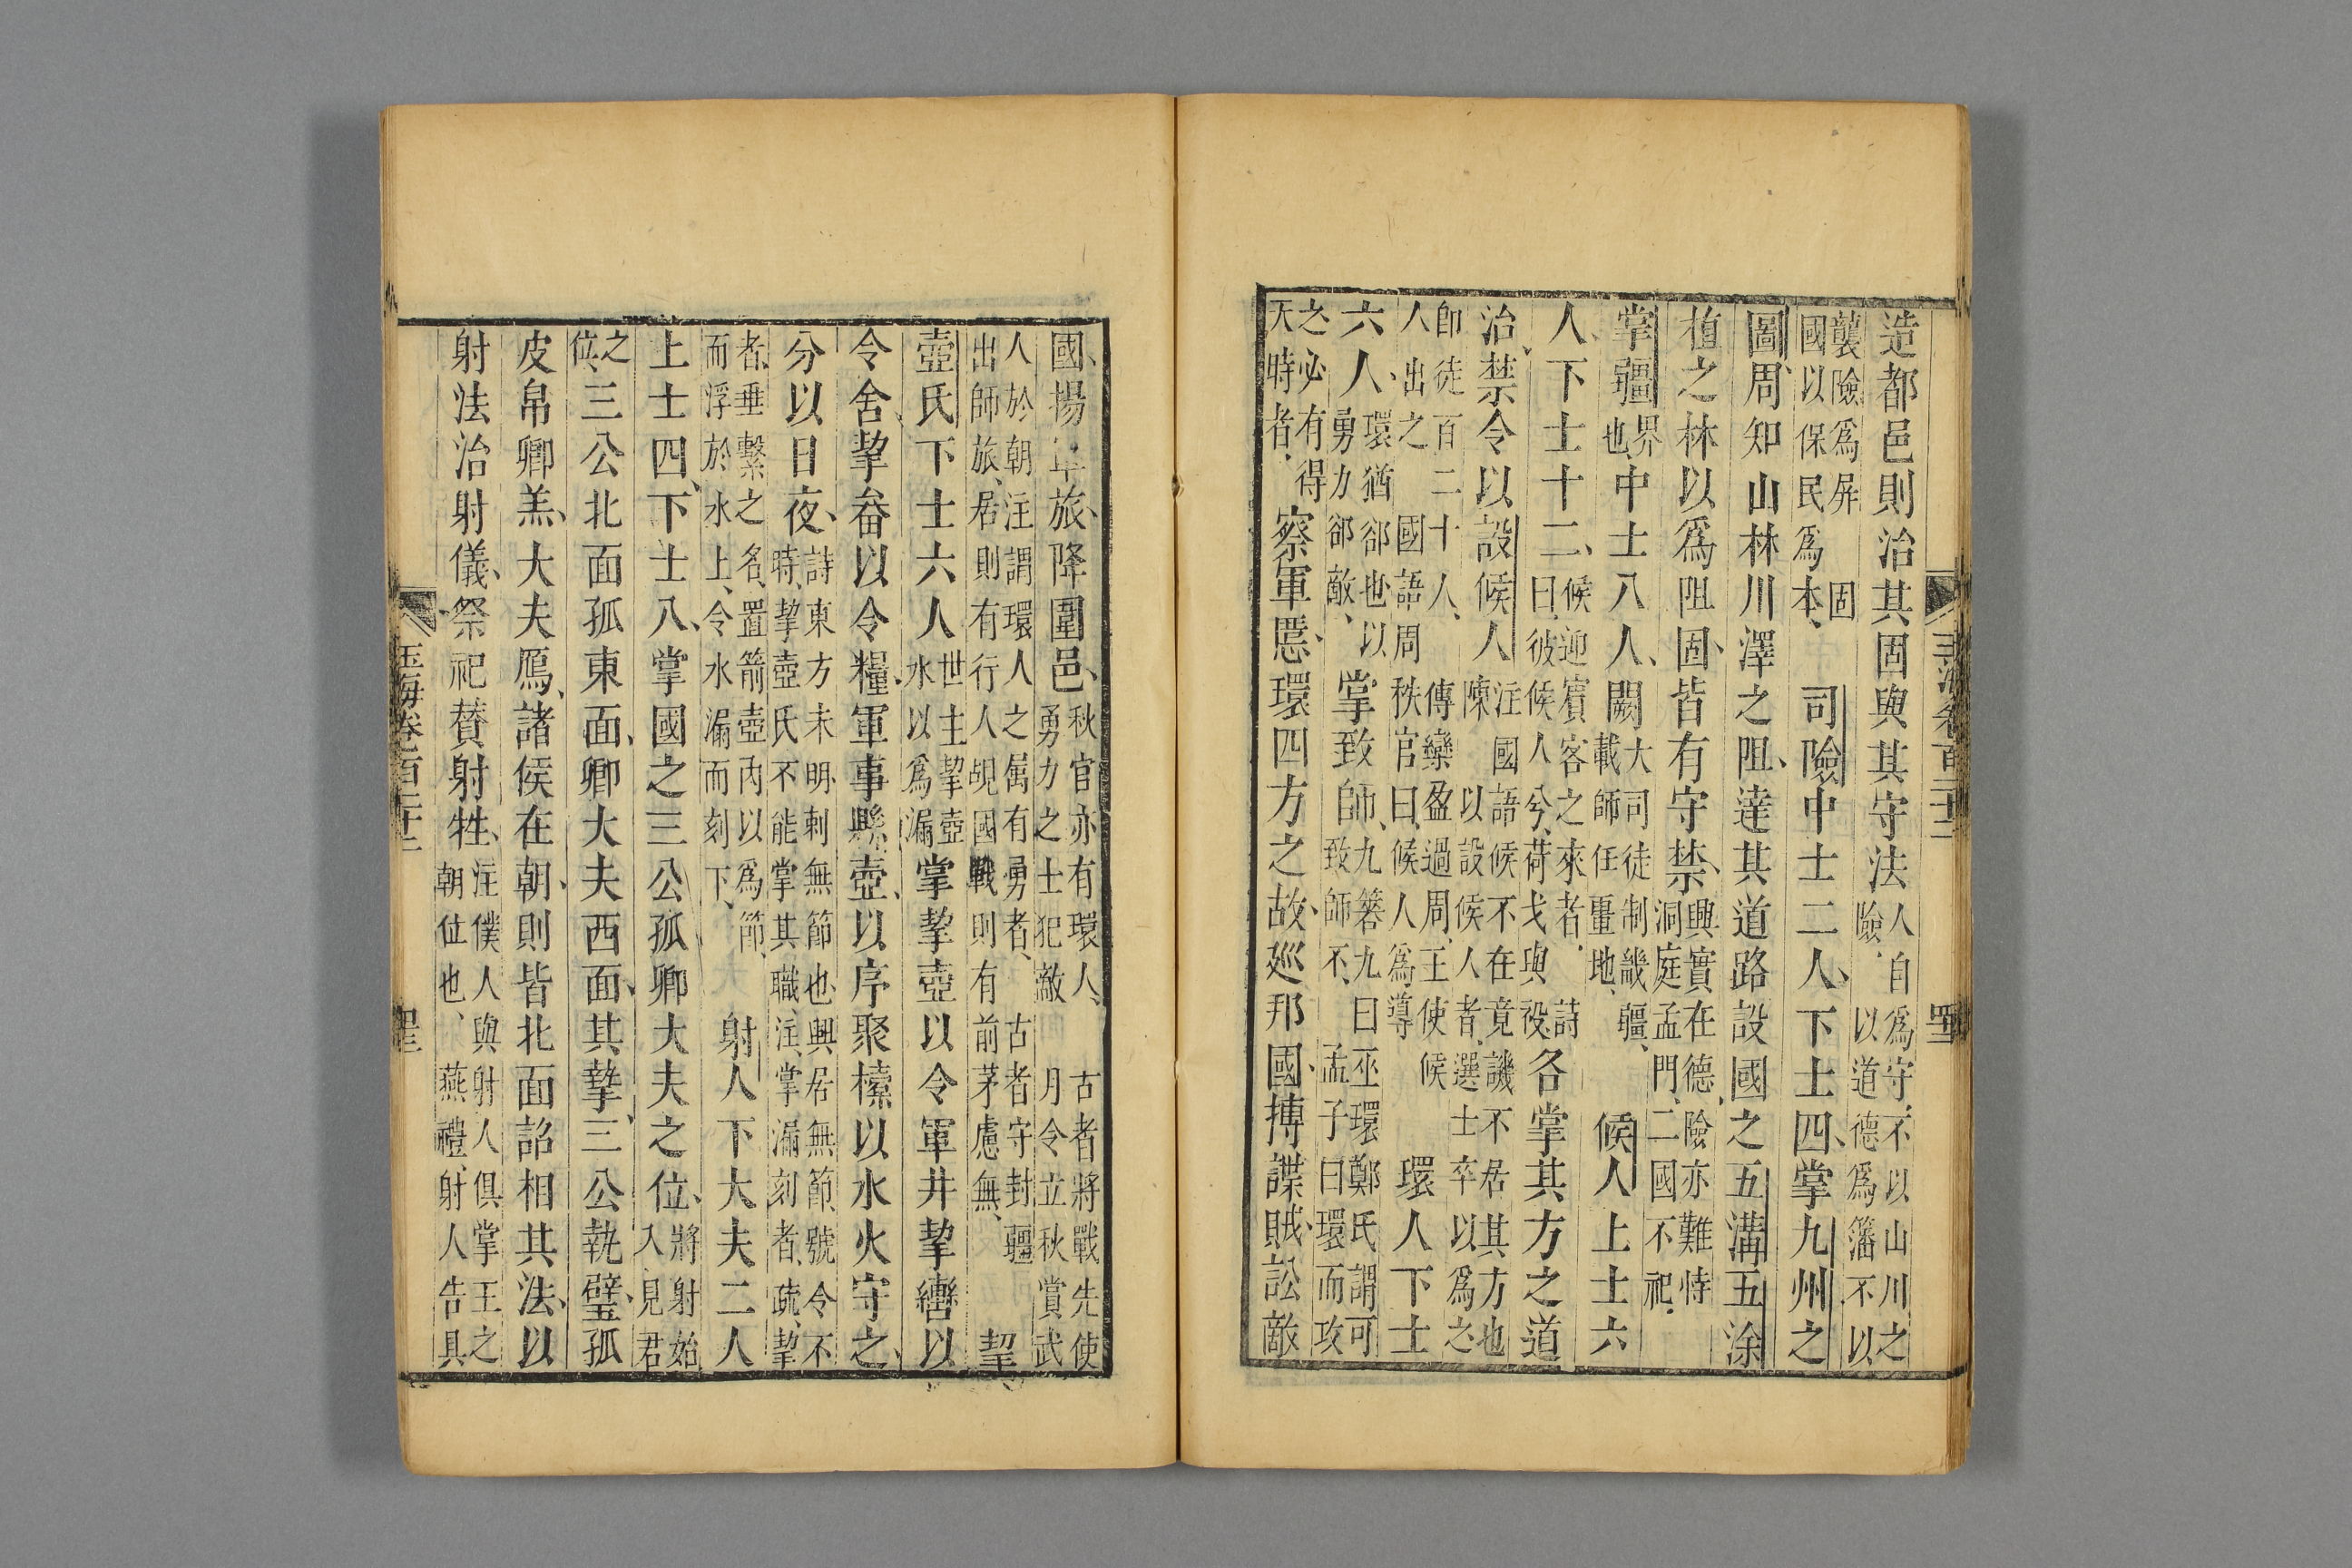 造都邑則治其固與其守法人自爲守不以山川之險以道德爲籓不以
襲險爲屏固國以保民爲本司險中士二人下士四掌九州之
圖周知山林川澤之阻達其道路設國之五溝五涂
植之林以爲阻固皆有守禁興實在德險亦難恃洞庭孟門二國不祀
掌疆界也中士八人闕大司徒制畿疆載師任畺地候人上士六
人下士十二候迎賓客之來者詩曰彼候人兮荷戈與祋各掌其方之道
治禁令以設候人注國語候不在竟譏不居其方也陳以設候人者選士卒以爲之
即徒百二十人傳欒盈過周王使候人出之國語周秩官曰候人爲導環人下士
六人環猶郤也以勇力郤敵掌致師九簭九曰巫環鄭氏謂可致師不孟子曰環而攻
之必有得天時者察軍慝環四方之故巡邦國搏諜賊訟敵
國揚軍旅降圍邑秋官亦有環人古者將戰先使勇力之士犯敵月令立秋賞武
人於朝注謂環人之屬有勇者古者守封疆出師旅居則有行人覘國戰則有前茅慮無挈
壺氏下士六人世主挈壺水以爲漏掌挈壺以令軍井挈轡以
令舍挈畚以令糧軍事縣壺以序聚㯓以水火守之
分以日夜詩東方未明刺無節也興居無節號令不時挈壺氏不能掌其職注掌漏刻者疏挈
者垂繫之名置箭壺內以爲節而浮於水上令水漏而刻下射人下大夫二人
上士四下士八掌國之三公孤卿大夫之位將射始入見君
之位三公北面孤東面卿大夫西面其摯三公執璧孤
皮帛卿羔大夫鴈諸侯在朝則皆北面詔相其法以
射法治射儀祭祀贊射牲注僕人與射人俱掌王之朝位也燕禮射人告具
玉海卷百